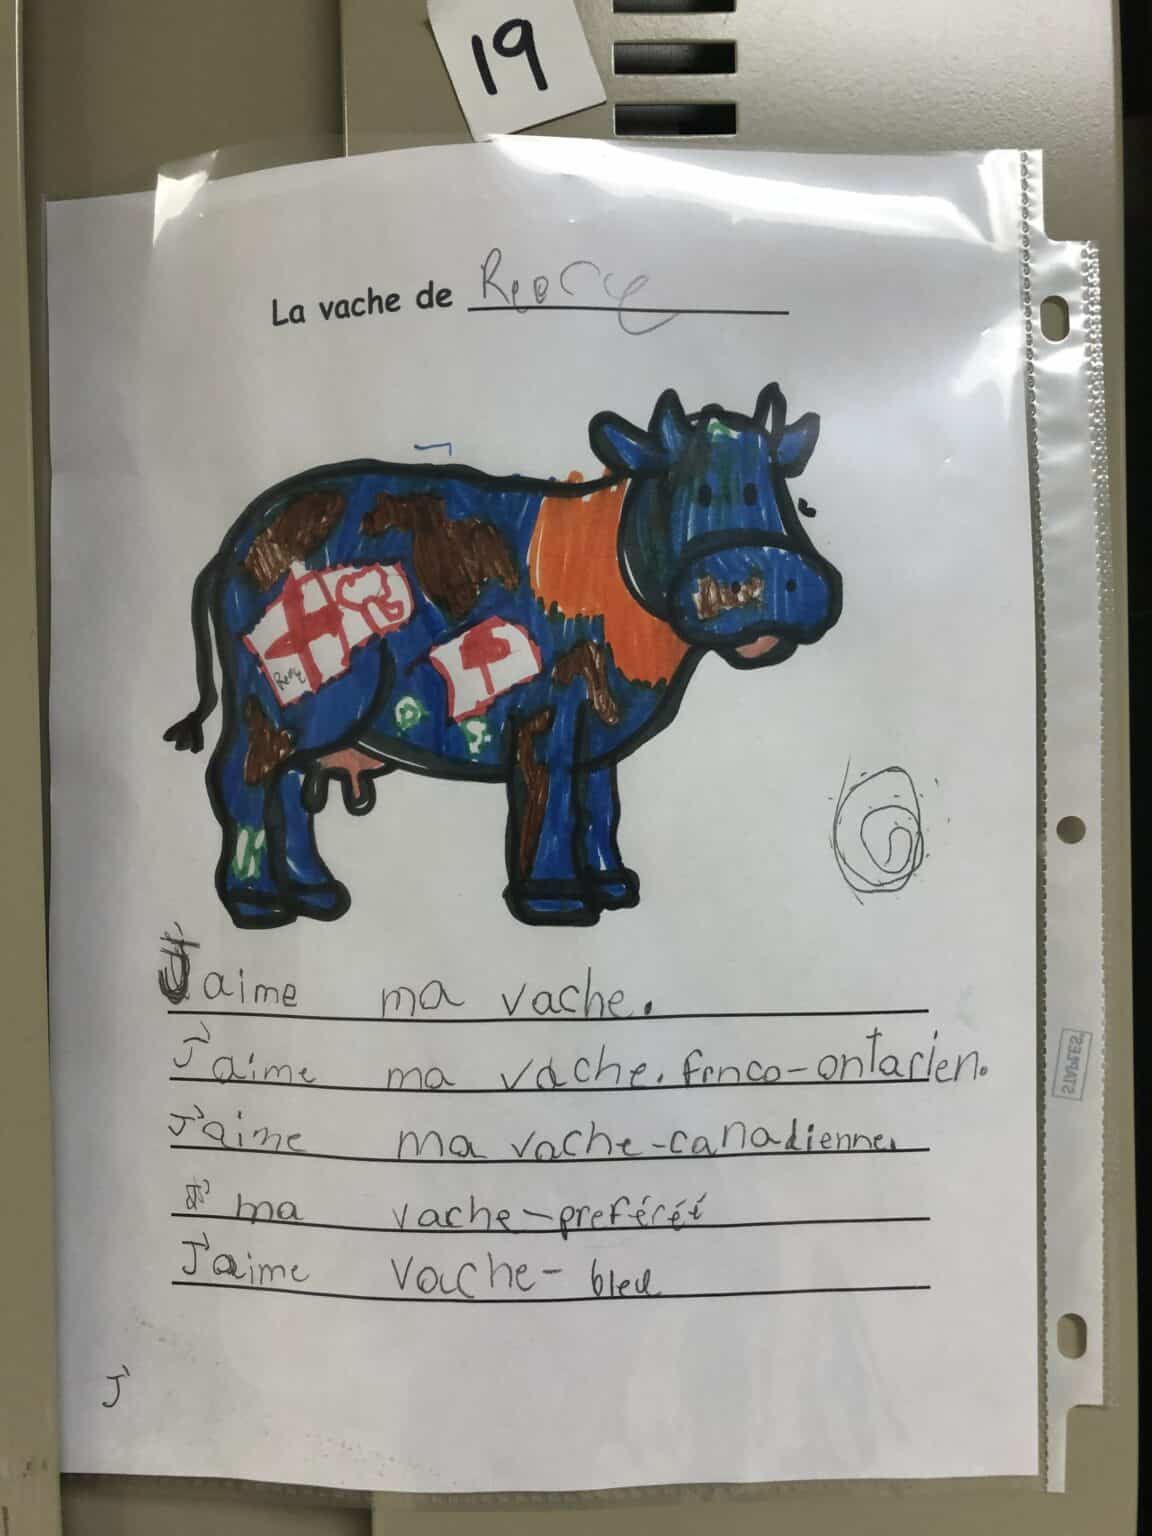 19
La vache de
J'aime ma vache.
J'aime ma vache. frnco-ontarien.
J'aime ma vache-canadienne.
J' ma vache-preféréé
J'aime vache- bleu
STAPLES
J'